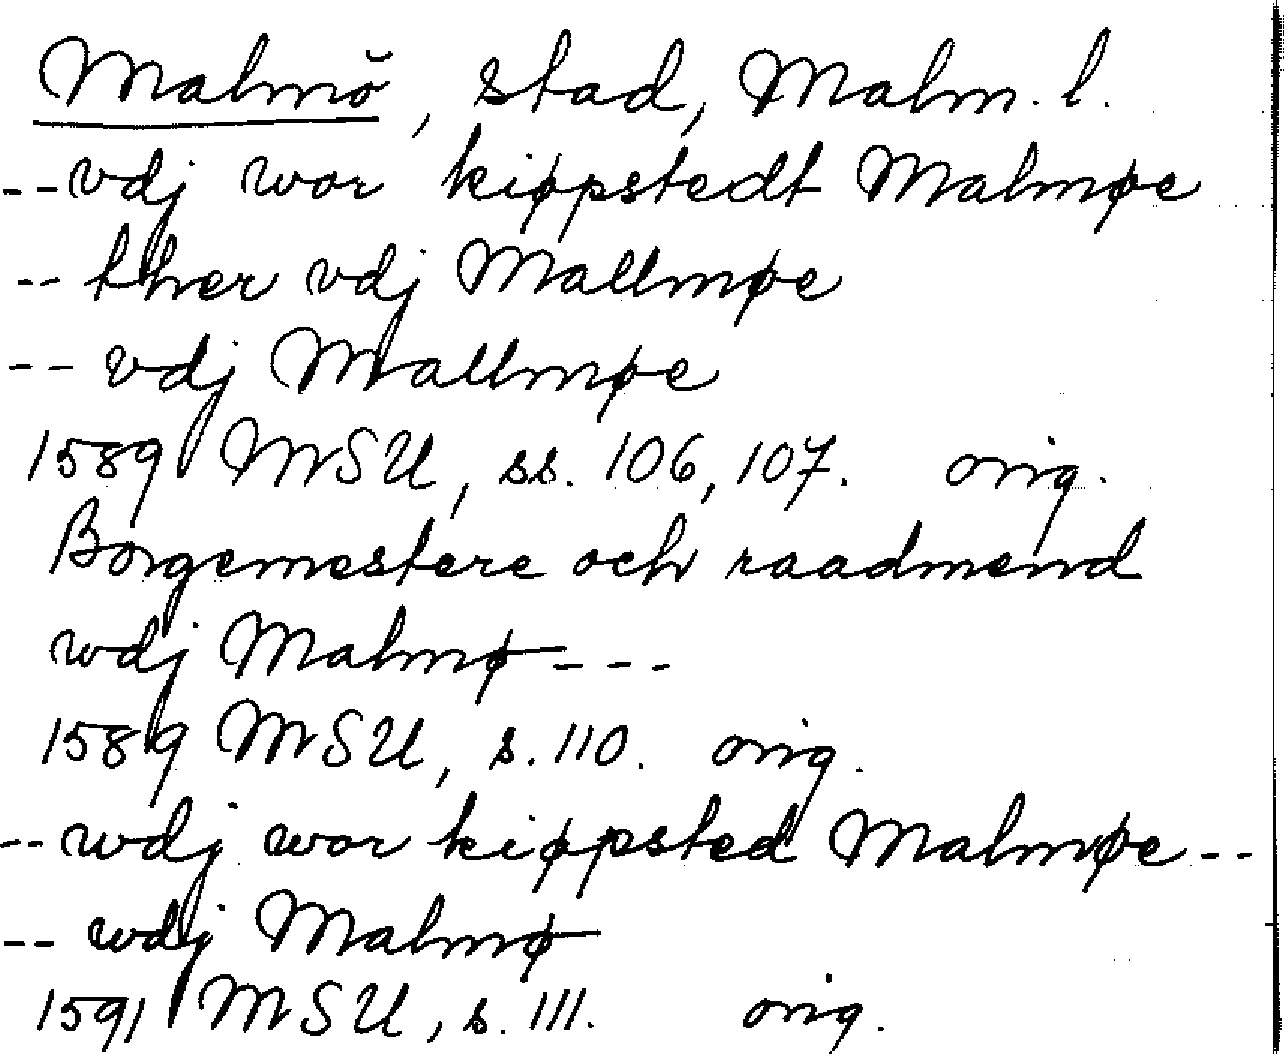 Malmö, stad, Malm. l.
--vdj wor kiøpstedt Malmøe
-- ther vdj Mallmøe
-- vdj Mallmøe
1589 MSU, ss. 106, 107. orig.
Borgemestere och raadmend
wdj Malmø---
1589 MSU, s. 110. orig.
--wdj wor kiøpsted Malmøe--
-- wdj Malmø
1591 MSU, s. 111. orig.